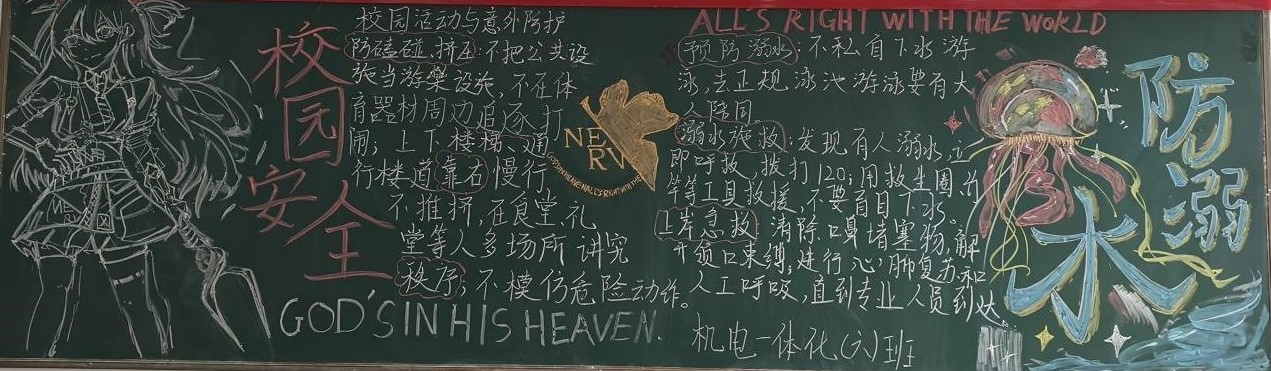 校园安全
校园活动与意外防护
防磕碰、挤压:不把公共设
施当游樂设施,不在体
育器材周边追逐打
闹;上下楼梯、通
行楼道靠右慢行,
不推挤,在食堂、礼
堂等人多场所讲究
秩序;不模仿危险动作。
GOD'S IN HIS HEAVEN.
NERV
GOD'S IN HIS HEAVEN. ALL'S RIGHT WITH THE
ALL'S RIGHT WITH THE WORLD
预防溺水:不私自下水游
泳,去正规泳池游泳要有大
人陪同。
溺水施救:发现有人溺水,立
即呼救,拨打120;用救生圈、竹
竿等工具救援,不要盲目下水。
上岸急救:清除口鼻堵塞物,解
开领口束缚,进行心肺复苏和
人工呼吸,直到专业人员到达
机电一体化(六)班
防溺水